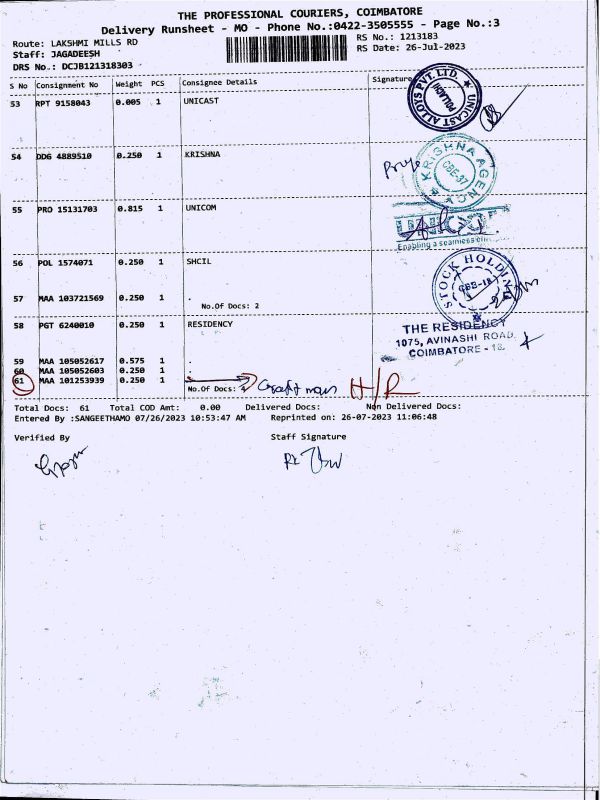 THE PROFESSIONAL COURIERS, COIMBATORE
Delivery Runsheet - MO - Phone No.:0422-3505555 - Page No.:3
Route: LAKSHMI MILLS RD
RS No.: 1213183
Staff: JAGADEESH
RS Date: 26-Jul-2023
DRS No.: DCJB121318303
S No Consignment No Weight PCS Consignee Details Signature
53 RPT 9158043 0.005 1 UNICAST
UNICAST ALLOYS PVT. LTD.
POLLACHI
54 DDG 4889510 0.250 1 KRISHNA
KRISHNA AGENCY
CBE-37
55 PRO 15131703 0.815 1 UNICOM
Enabling a seamless
56 POL 1574071 0.250 1 SHCIL
STOCK HOLDING
CBE-18
57 MAA 103721569 0.250 1 .
No.Of Docs: 2
58 PGT 6240010 0.250 1 RESIDENCY
THE RESIDENCY
1075, AVINASHI ROAD,
COIMBATORE - 18.
59 MAA 105052617 0.575 1 .
60 MAA 105052603 0.250 1 .
61 MAA 101253939 0.250 1
No.Of Docs: 4
H/R
Total Docs: 61 Total COD Amt: 0.00 Delivered Docs: Non Delivered Docs:
Entered By :SANGEETHAMO 07/26/2023 10:53:47 AM Reprinted on: 26-07-2023 11:06:48
Verified By Staff Signature